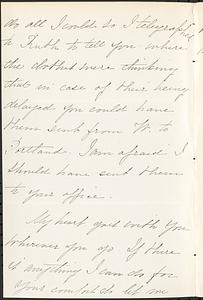 as all I could so I telegraphed
to Ruth to tell you where
the clothes were thinking
that in case of their being
delayed you could have
them sent from W. to
Portland. I am afraid I
should have sent them
to your office.
My heart goes with you
wherever you go. If there
is anything I can do for
your comfort do let me